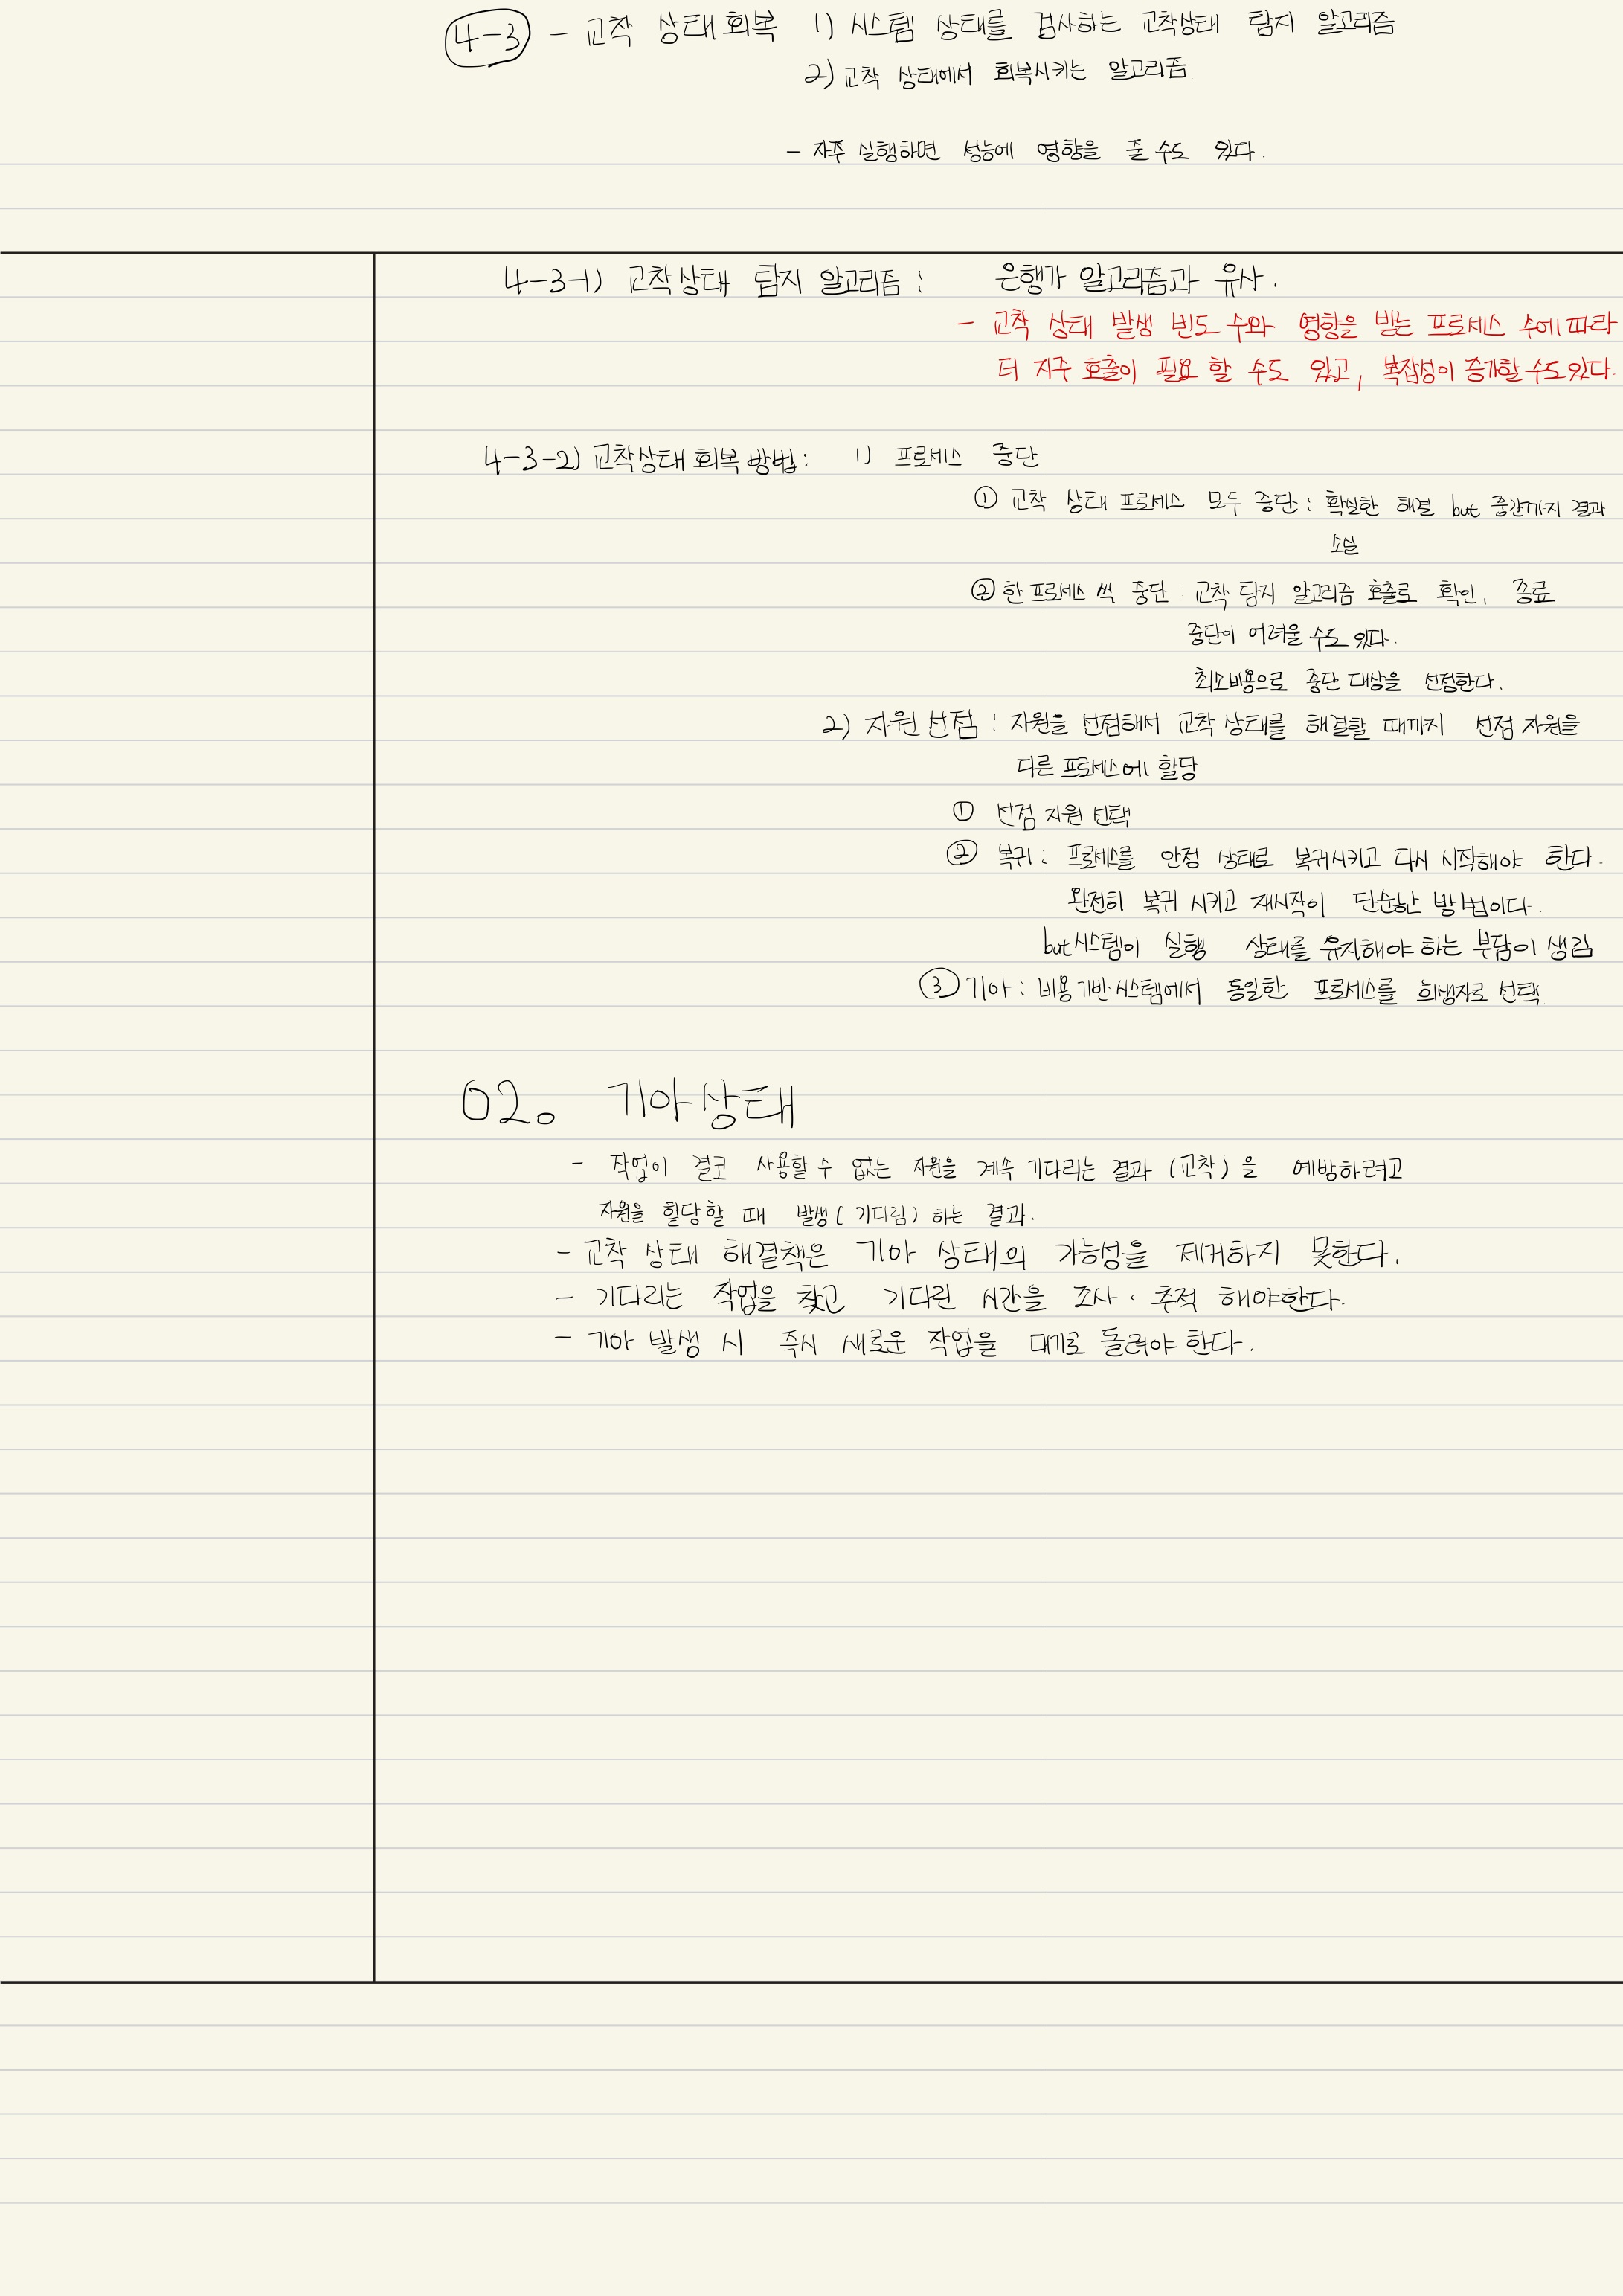 4-3 - 교착 상태 회복 1) 시스템 상태를 검사하는 교착상태 탐지 알고리즘
2) 교착 상태에서 회복시키는 알고리즘.
- 자주 실행하면 성능에 영향을 줄 수도 있다.
4-3-1) 교착상태 탐지 알고리즘 : 은행가 알고리즘과 유사.
- 교착 상태 발생 빈도 수와 영향을 받는 프로세스 수에 따라
더 자주 호출이 필요 할 수도 있고, 복잡성이 증가할 수도 있다.
4-3-2) 교착상태 회복 방법 : 1) 프로세스 중단
① 교착 상태 프로세스 모두 중단 : 확실한 해결 but 중간까지 결과
소실
② 한 프로세스 씩 중단 : 교착 탐지 알고리즘 호출로 확인, 종료
중단이 어려울 수도 있다.
최소비용으로 중단 대상을 선점한다.
2) 자원 선점 : 자원을 선점해서 교착 상태를 해결할 때까지 선점 자원을
다른 프로세스에 할당
① 선점 자원 선택
② 복귀 : 프로세스를 안정 상태로 복귀시키고 다시 시작해야 한다.
완전히 복귀 시키고 재시작이 단순한 방법이다.
but 시스템이 실행 상태를 유지해야 하는 부담이 생김
③ 기아 : 비용 기반 시스템에서 동일한 프로세스를 희생자로 선택
02. 기아상태
- 작업이 결코 사용할 수 없는 자원을 계속 기다리는 결과 (교착) 을 예방하려고
자원을 할당할 때 발생 ( 기다림 ) 하는 결과.
- 교착 상태 해결책은 기아 상태의 가능성을 제거하지 못한다.
- 기다리는 작업을 찾고 기다린 시간을 조사 · 추적 해야한다.
- 기아 발생 시 즉시 새로운 작업을 대기로 돌려야 한다.